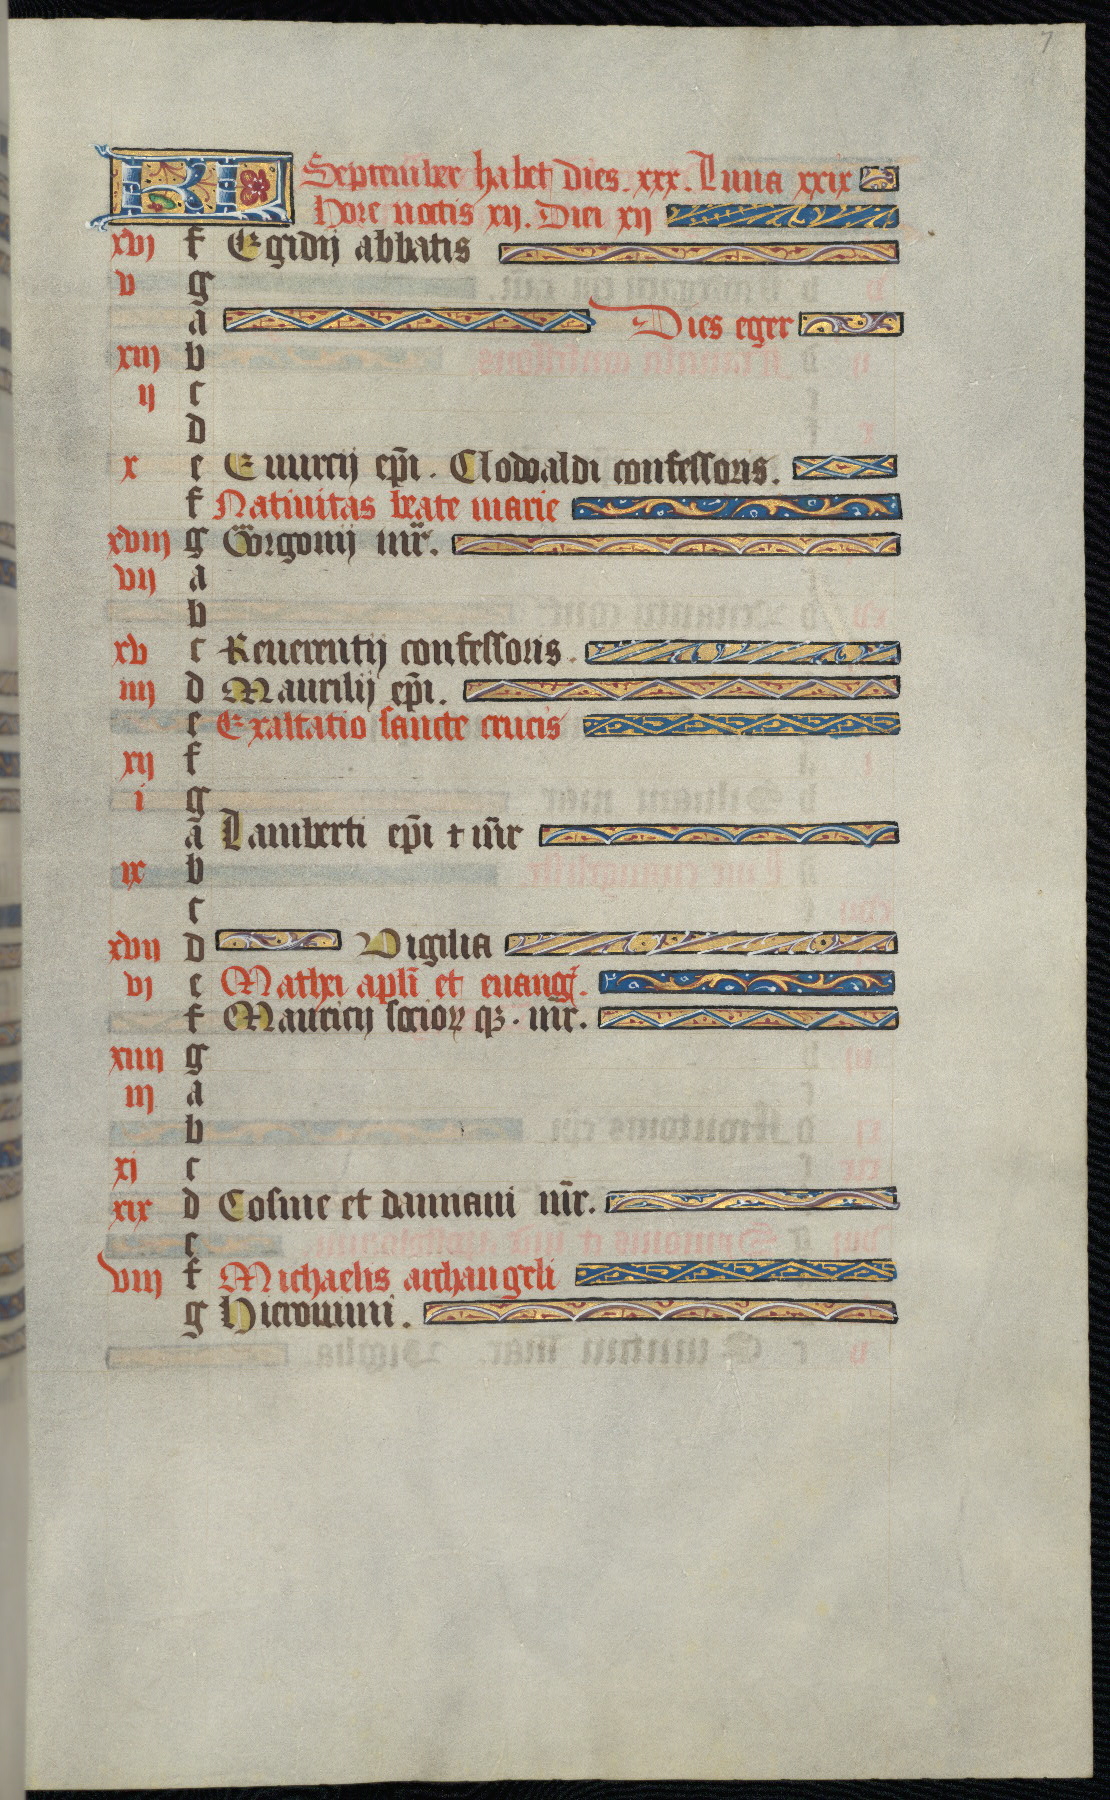 7
KL September habet dies. xxx. Luna xxix
Hore noctis xij. Diei xij
xvj f Egidij abbatis
v g
a Dies eger
xiij b
ij c
d
x e Euurcij ep̄i. Clodoaldi confessoris.
f Natiuitas beate marie
xviij g Gorgonij mr̄.
vij a
b
xv c Reuerentij confessoris.
iiij d Maurilij ep̄i.
e Exaltatio sancte crucis
xij f
i g
a Lamberti ep̄i ⁊ mr̄
ix b
c
xvij d Vigilia
vj e Mathei apl̄i et euangͥ.
f Mauricij socioꝝ qꝫ. mr̄.
xiiij g
iij a
b
xj c
xix d Cosme et damiani mr̄.
e
viij f Michaelis archangeli
g Hieronimi.